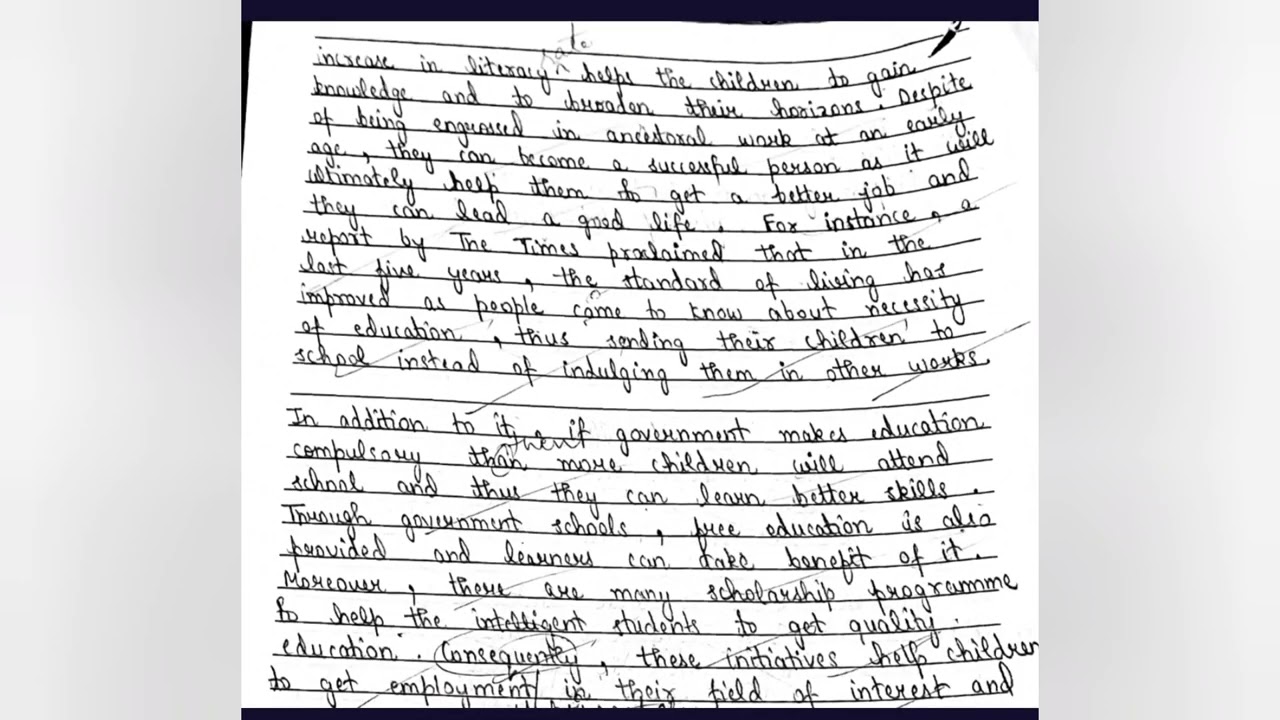 rate
increase in literacy helps the children to gain
knowledge and to broaden their horizons. Despite
of being engrossed in ancestoral work at an early
age, they can become a successful person as it will
ultimately help them to get a better job and
they can lead a good life. For instance, a
report by The Times proclaimed that in the
last five years, the standard of living has
improved as people come to know about necessity
of education, thus sending their children to
school instead of indulging them in other works.
In addition to it, if government makes education
compulsory than more children will attend
school and thus they can learn better skills.
Through government schools, free education is also
provided and learners can take benefit of it.
Moreover, there are many scholarship programme
to help the intelligent students to get quality
education. Consequently, these initiatives help children
to get employment in their field of interest and